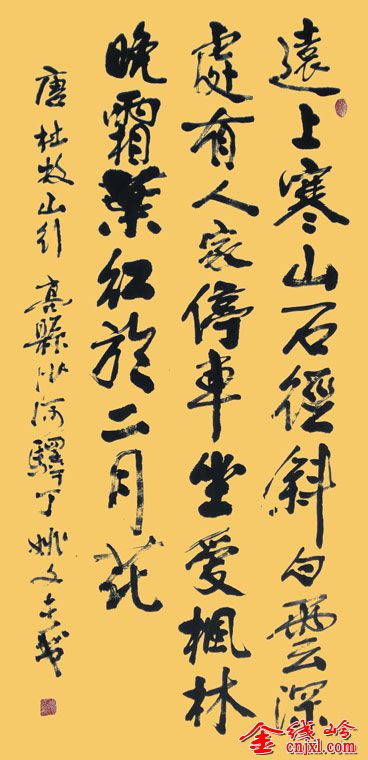 遠上寒山石徑斜白雲深
處有人家停車坐愛楓林
晚霜葉紅於二月花
唐杜牧山行 高縣沙河驛丁 姚文
金线岭
cnjxl.com